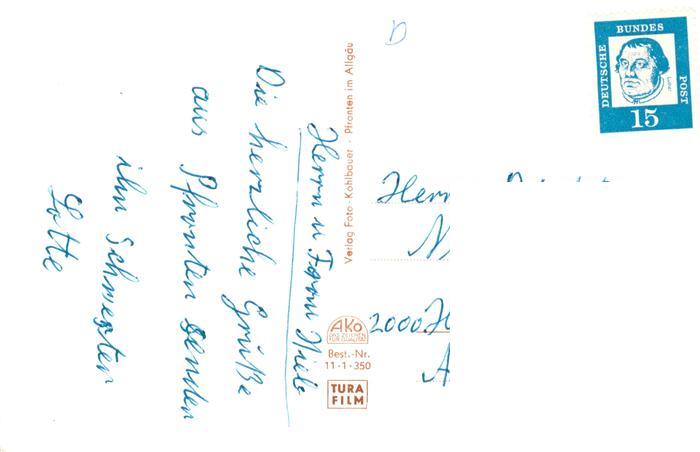 Herrn u Frau Niels
Die herzliche Grüße
aus Pfronten senden
ihn Schwester
Lotte
Verlag Foto Kohlbauer · Pfronten im Allgäu
AKo
Best.-Nr.
11·1·350
TURA
FILM
DEUTSCHE BUNDES POST
15
Herrn
2000 H